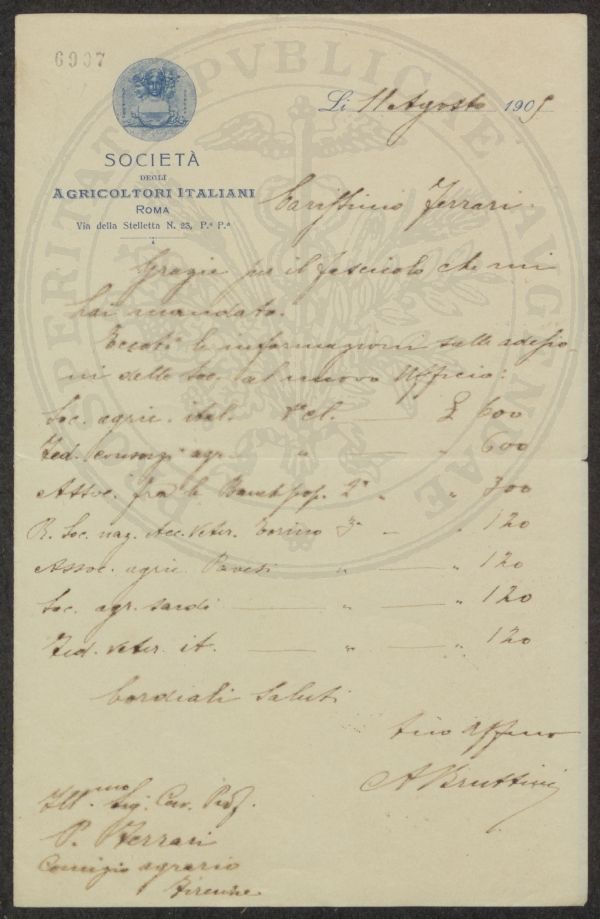 6937
Li 11 Agosto 1905
SOCIETÀ
DEGLI
AGRICOLTORI ITALIANI
ROMA
Via della Stelletta N. 23, P.º P.º
PROSPERITATI PVBLICAE AVGENDAE
Carissimo Ferrari
Grazie per il fascicolo che mi
hai mandato.
Eccoti le informazioni sulle adesio
ni delle Soc. al nuovo Ufficio:
Soc. agric. ital. 1ª cl. — £ 600
Fed. consorzi agr. " — " 600
Assoc. fra le Banche pop. 2ª " " 300
R. Soc. naz. Acc. Veter. Torino 3ª — " 120
Assoc. agric. Pavesi " — " 120
Soc. agr. sardi — " — " 120
Fed. veter. it. — " — " 120
Cordiali saluti
tuo affmo
A Bruttini
Illmo Sig. Cav. Prof.
P. Ferrari
Comizio agrario
Firenze